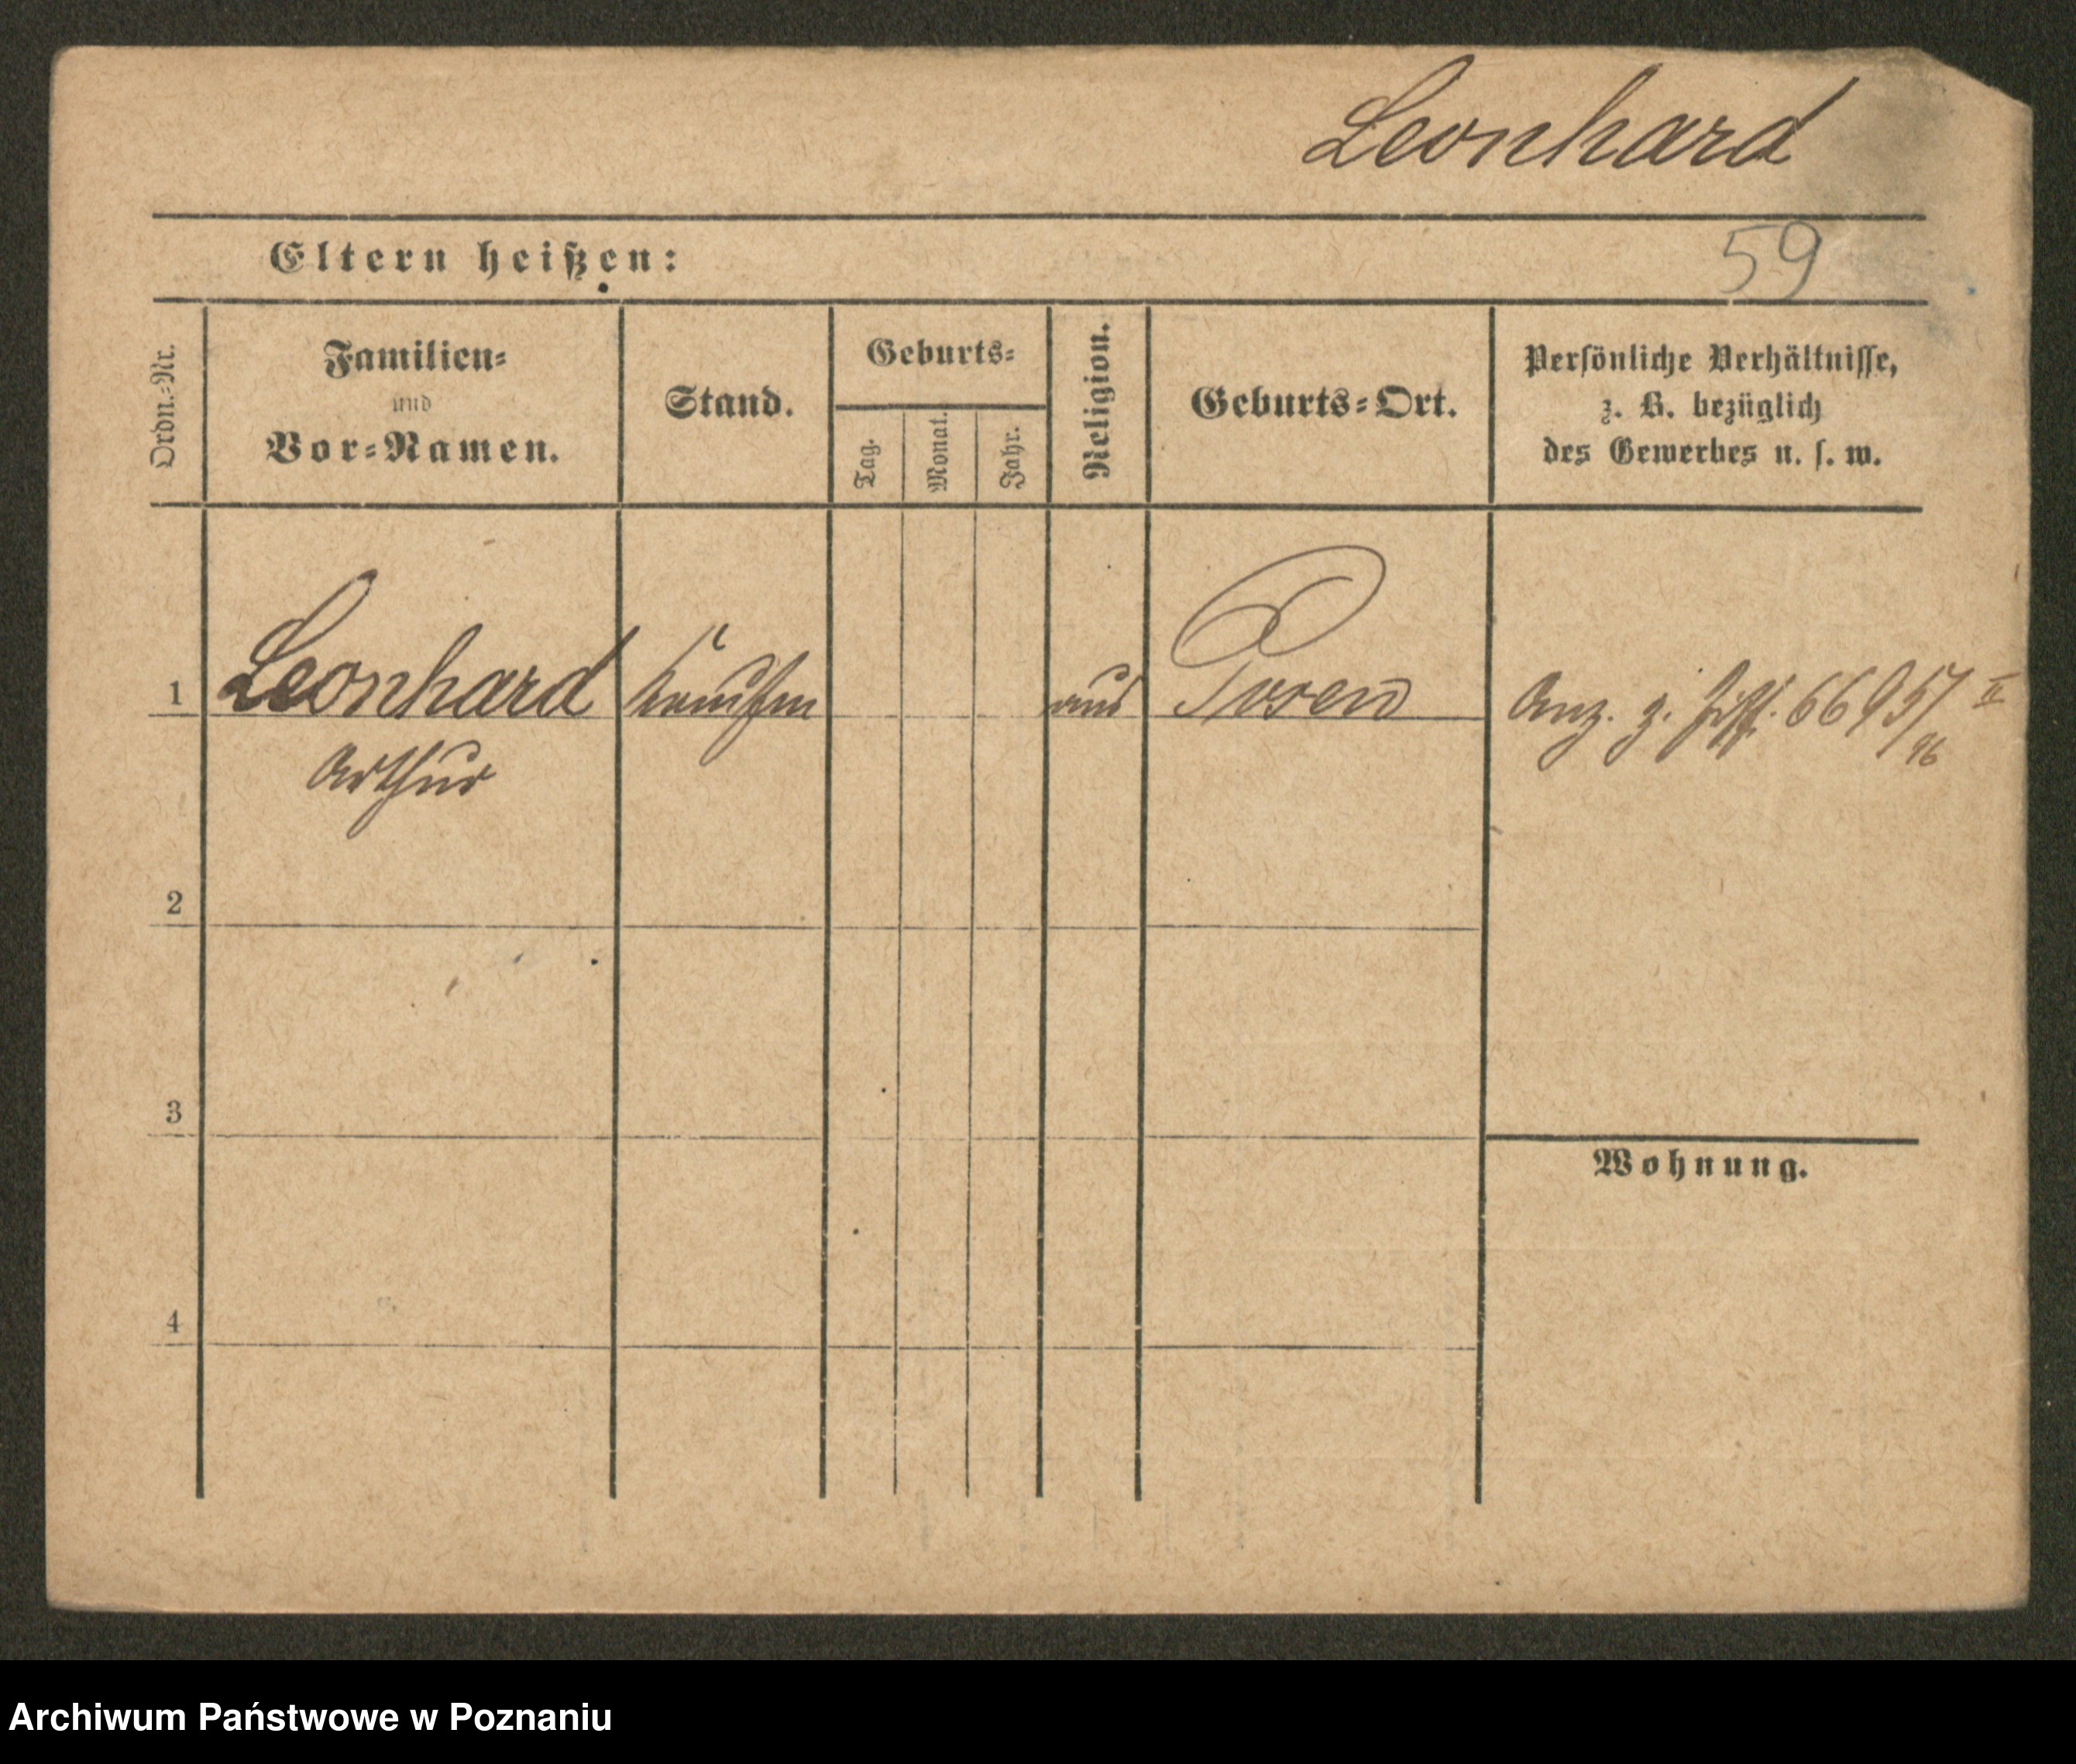 Leonhard
Eltern heißen:
59
Ordn.-Nr.
Familien-
und
Vor-Namen.
Stand.
Geburts-
Tag.
Monat.
Jahr.
Religion.
Geburts-Ort.
Persönliche Verhältnisse,
z. B. bezüglich
des Gewerbes u. s. w.
1 Leonhard Kaufm aus Posen Anz. z. 6695/96 II
Arthur
2
3
Wohnung.
4
Archiwum Państwowe w Poznaniu